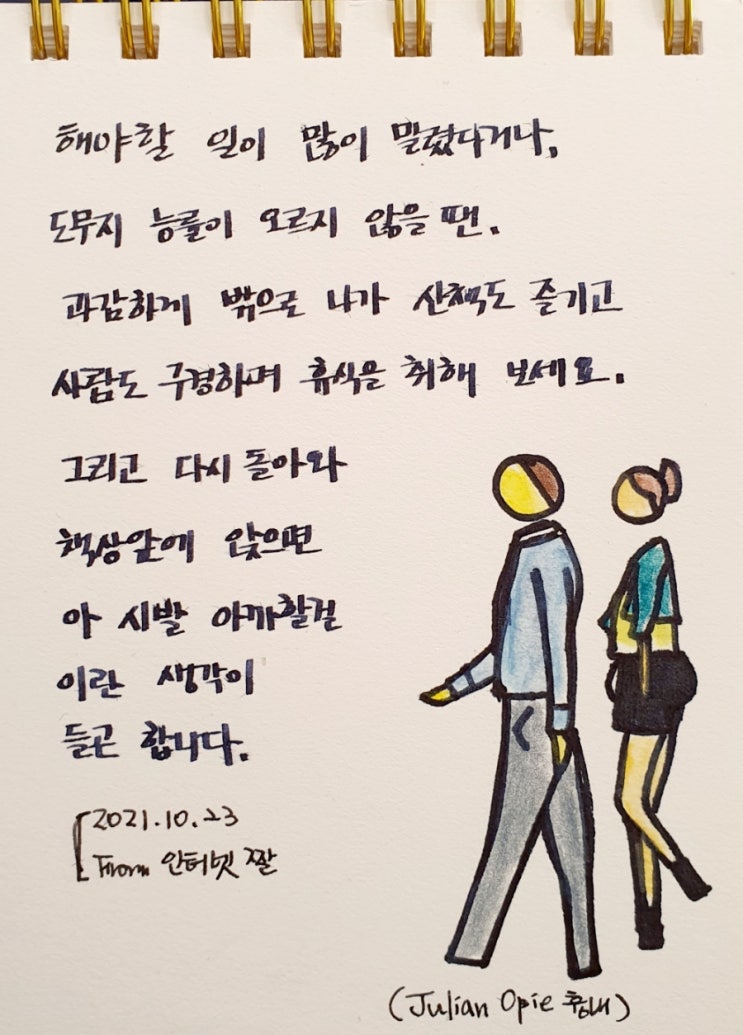 해야할 일이 많이 밀렸다거나,
도무지 능률이 오르지 않을 땐.
과감하게 밖으로 나가 산책도 즐기고
사람도 구경하며 휴식을 취해 보세요.
그리고 다시 돌아와
책상앞에 앉으면
아 시발 아까할걸
이란 생각이
들곤 합니다.
2021.10.23
From 인터넷 짤
(Julian Opie 흉내)